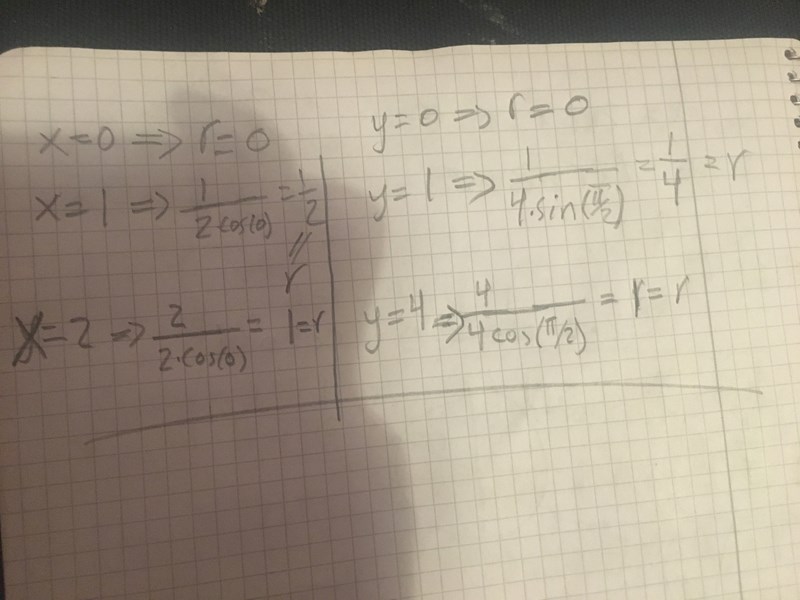 x=0 => r=0
x=1 => 1/(2cos(0)) = 1/2
=
r
x=2 => 2/(2·cos(0)) = 1=r
y=0 => r=0
y=1 => 1/(4·sin(π/2)) = 1/4 = r
y=4 => 4/(4cos(π/2)) = 1=r